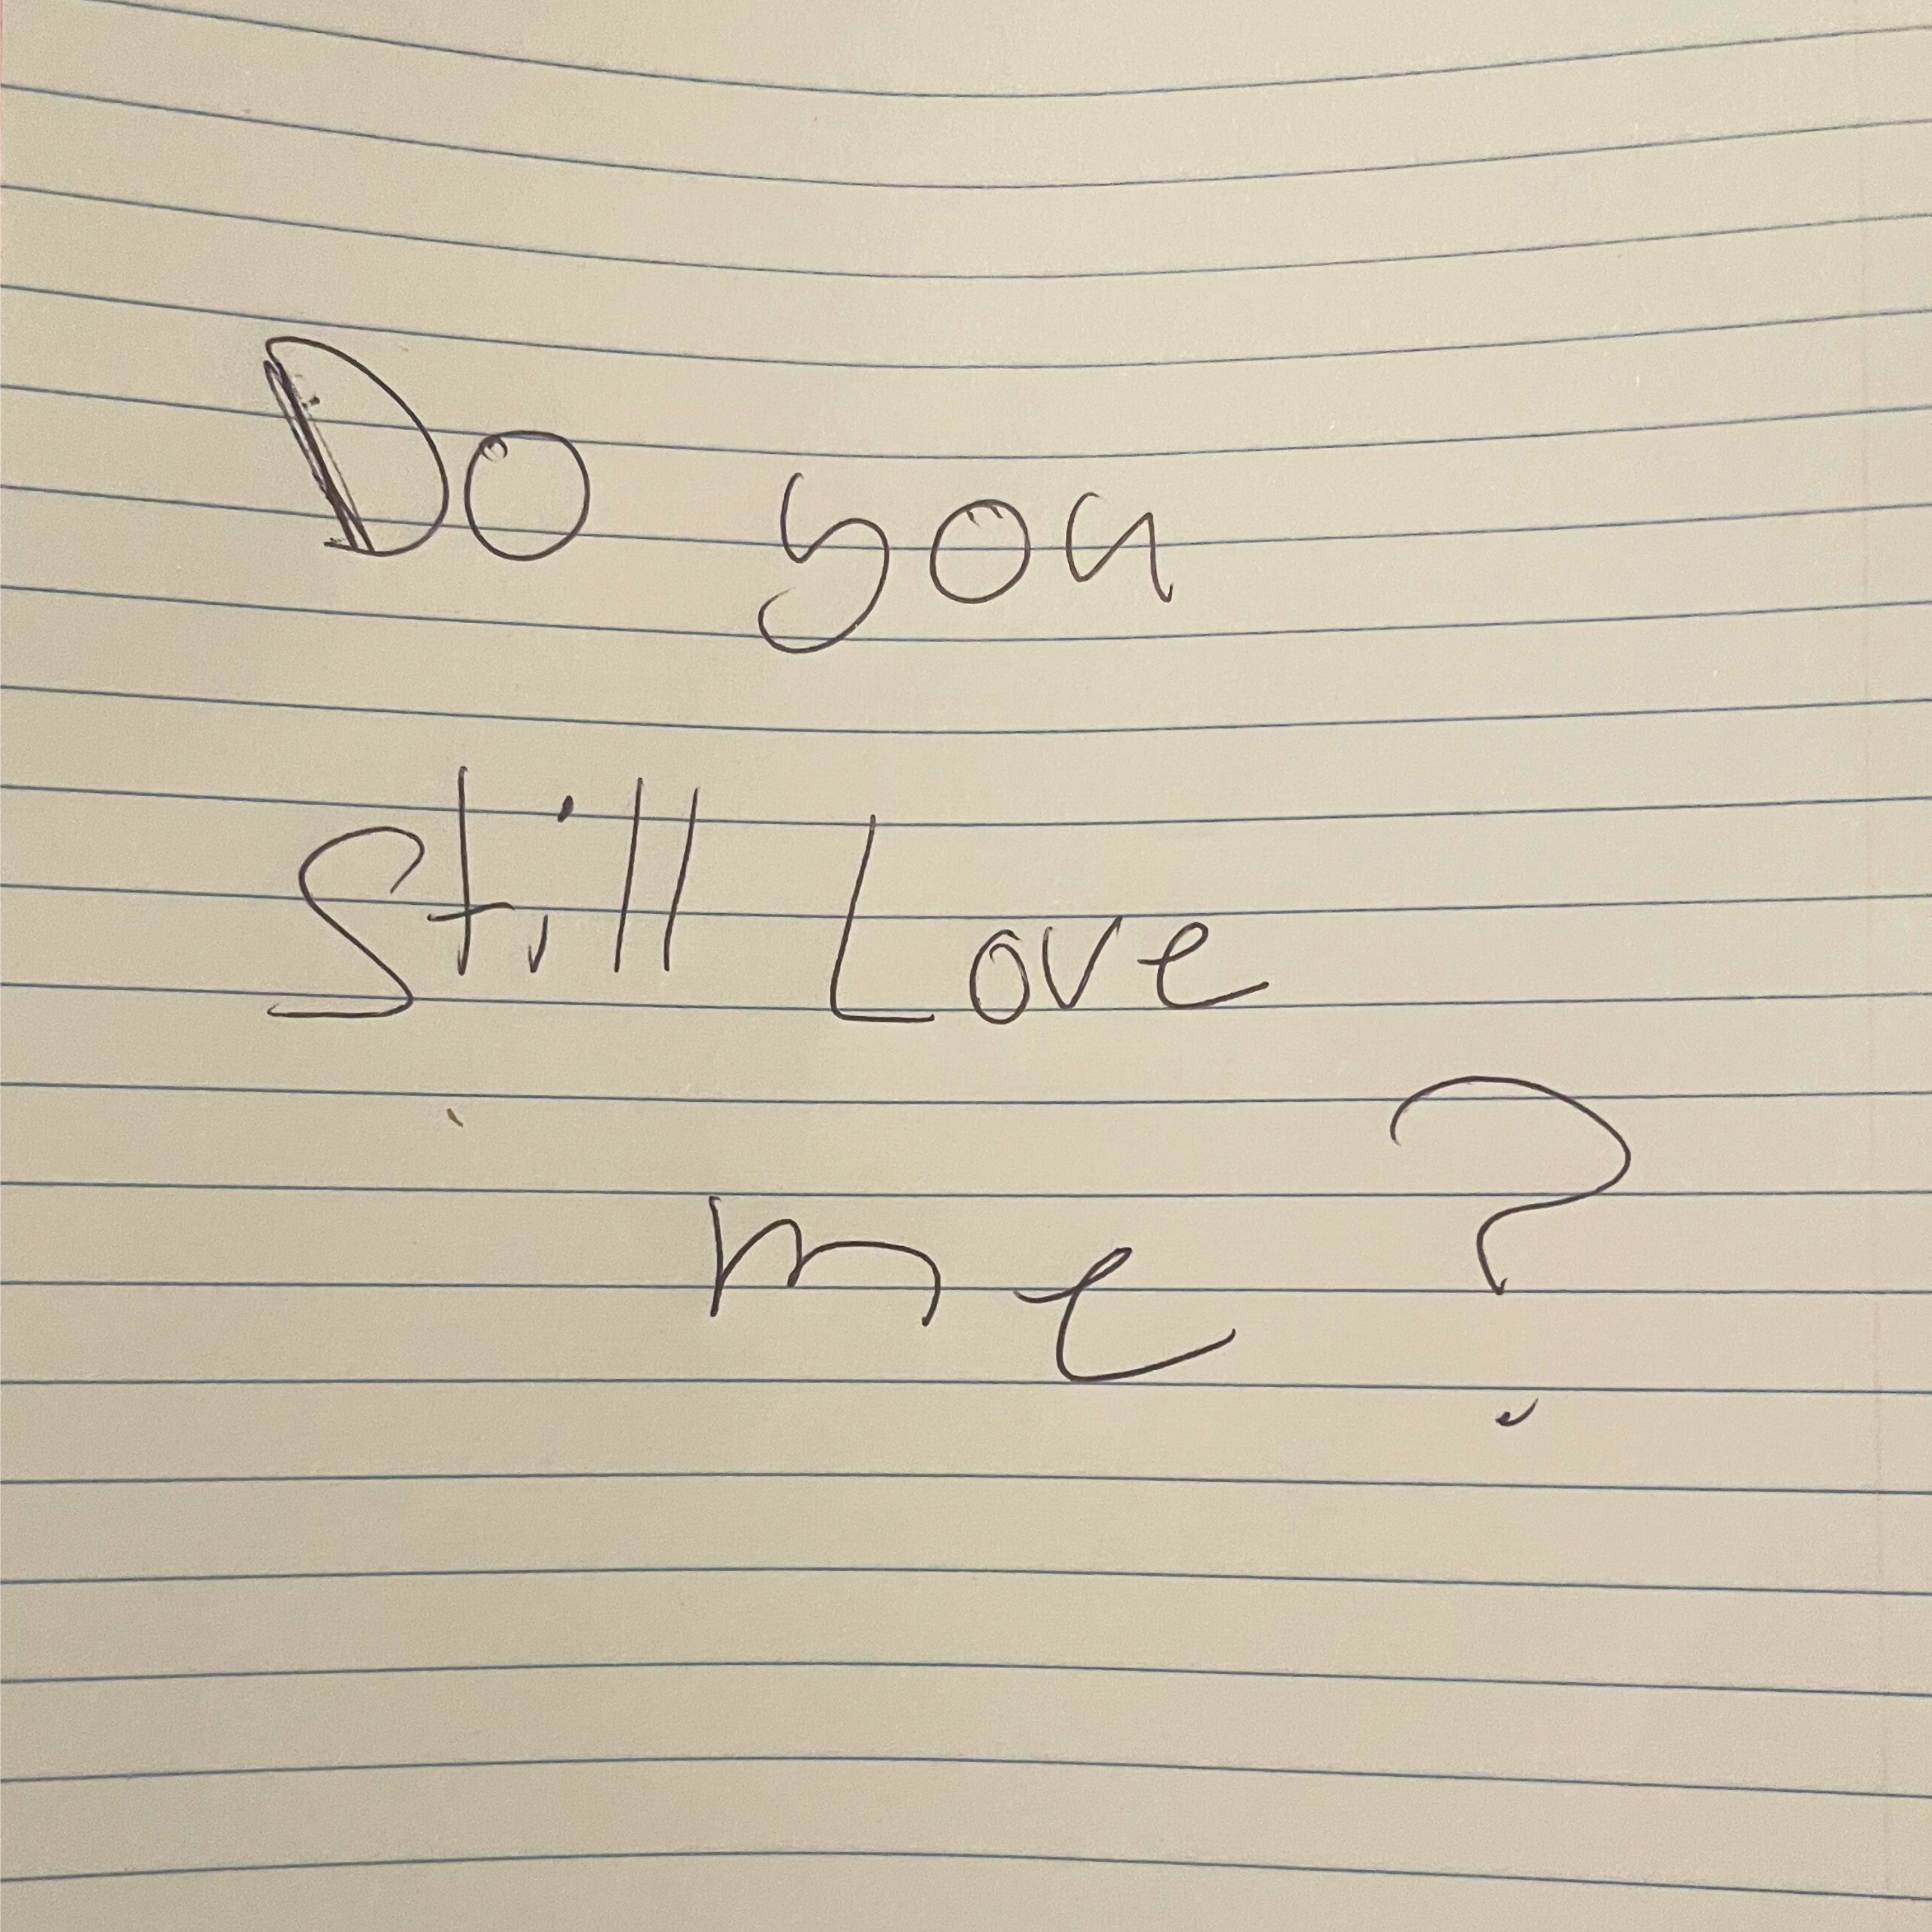 Do you
Still Love
me?